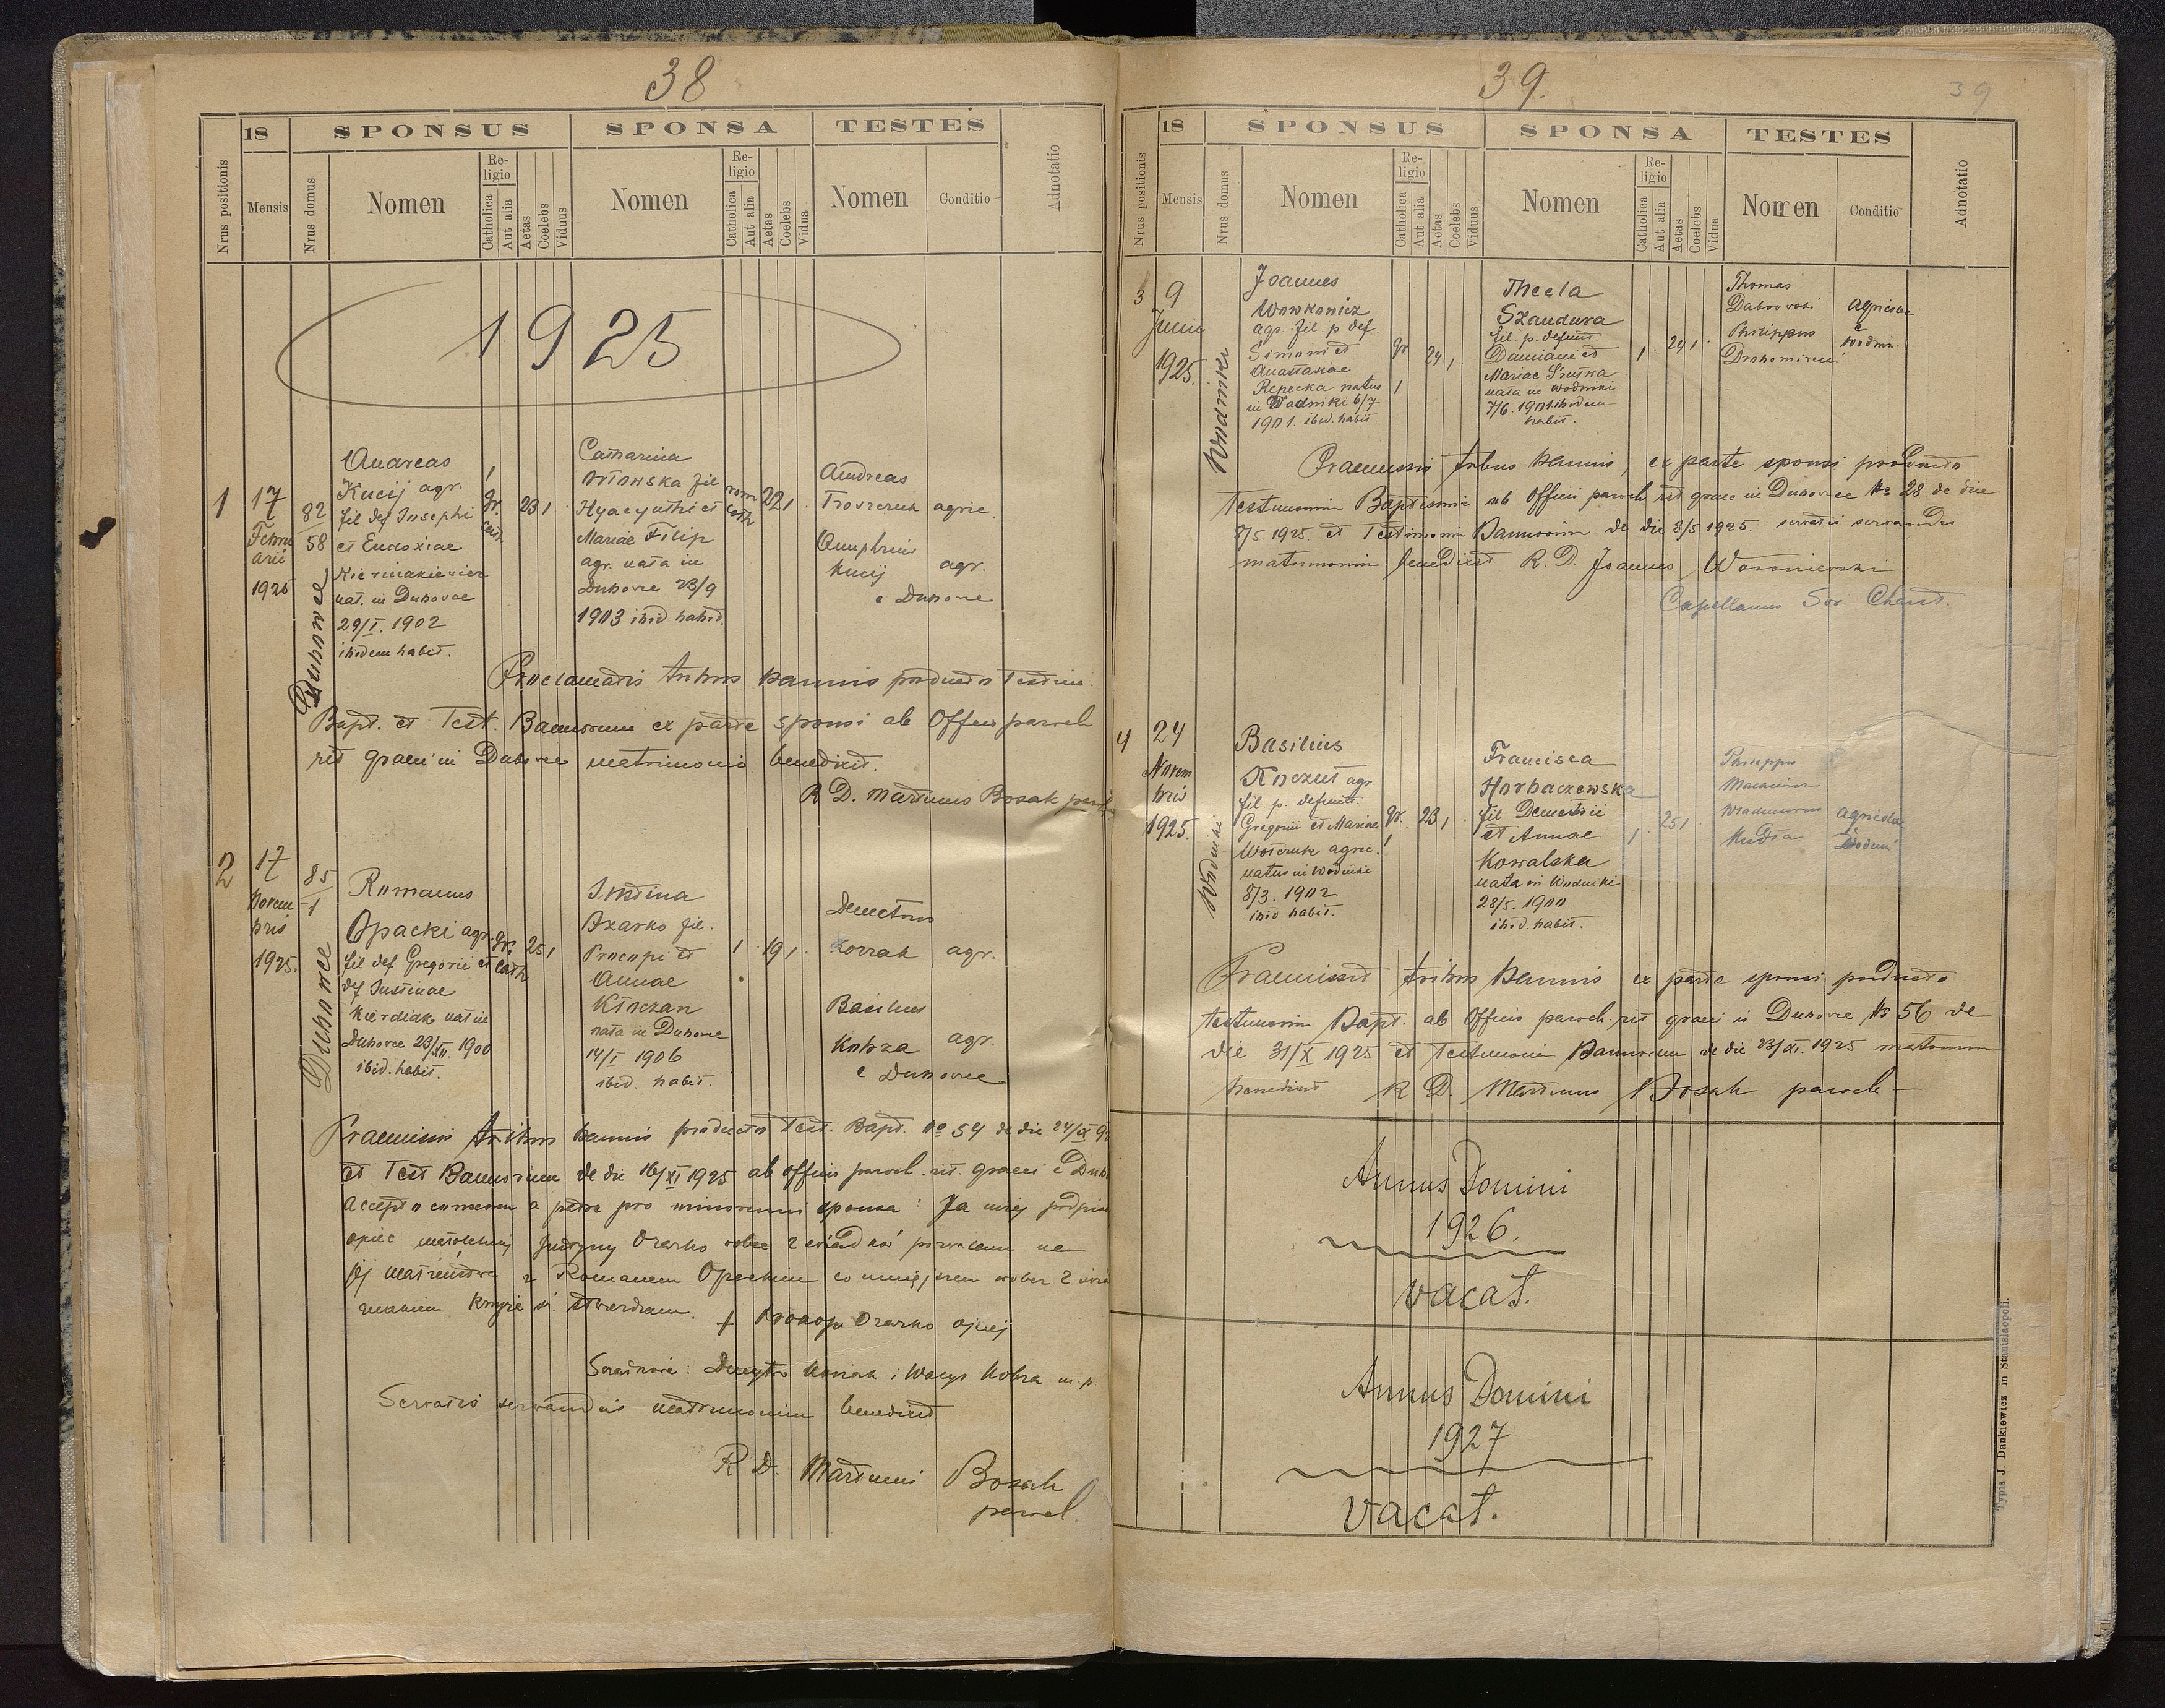 38
18 SPONSUS SPONSA TESTES
Nrus positionis Mensis Nrus domus Nomen Religio Catholica Aut alia Aetas Coelebs Viduus Nomen Religio Catholica Aut alia Aetas Coelebs Vidua Nomen Conditio Adnotatio
1925
1
17
Februarii
1925
82
58
Duhowce
Andreas
Kucij agr.
fil def Josephi
et Eudoxiae
nat. in Duhovce
29/I. 1902
ibidem habit.
1
gr. cath
23 1
Catharina
fil
Hyacynthi et
Mariae Filip
agr. nata in
Duhovce 23/9
1903 ibid habit.
rom cath
22 1
Andreas
agric.
Onuphrius
Kucij agr.
e Duhovce
Proclamatis tribus bannis producto Testim.
Bapt. et Test. Bannorum ex parte sponsi ab Officio paroch
rit graeci in Duhovce matrimonio benedixit.
R D. Martinus Bosak paroch
2
17
Novembris
1925.
85
1
Duhowce
Romanus
Opacki agr.
fil def Gregorii et
def Justinae
Kierdiak nat in
Duhovce 23/XII. 1900
ibid. habit.
gr. cath
25 1
Justina
Ozarko fil.
Procopi et
Annae
nata in Duhovce
14/I 1906
ibid. habit.
1 19 1
Demetrius
agr.
Basilius
Kobza agr.
e Duhovce
Praemissis tribus bannis producto Test. Bapt. No 54 de die
et Test Bannorum de die 16/XI 1925 ab officio paroch. rit. graeci e
Accepto consensu a patre pro minorenni sponsa: Ja niżej
małoletniej Justyny Ozarko wobec 2 świadków pozwalam na
jej małżeństwo z Romanem co niniejszem wobec 2
znakiem krzyża św. stwierdzam.
+ Prokop Ozarko ojciec
Świadkowie: Dmytro i Wasyl Kobza m. p.
Servatis servandis matrimonium benedixit
R D. Martinus Bosak
paroch.
39.
39
18 SPONSUS SPONSA TESTES
Nrus positionis Mensis Nrus domus Nomen Religio Catholica Aut alia Aetas Coelebs Viduus Nomen Religio Catholica Aut alia Aetas Coelebs Vidua Nomen Conditio Adnotatio
3
9
Junii
1925.
Wodniki
Joannes
Wowkowicz
agr. fil. p def.
Simoni et
Anastasiae
Repecka natus
in Wodniki 6/7
1901. ibid. habit.
gr. 1
24 1
Thecla
Szandura
fil. p. defunct.
Damiani et
Mariae
nata in Wodniki
7/6. 1901 ibidem
habit.
1 24 1
Thomas
Philippus
Agricolae
e
Wodnik
Praemissis tribus bannis, ex parte sponsi producto
Testimonium Baptismi ab Officii paroch rit graec in Duhovce No 28 de die
8/5. 1925. et Testimonium Bannorum de die 8/5 1925. servatis servandis
matrimonium benedixit R. D. Joannes
Capellanus
4
24
Novembris
1925.
Wodniki
Basilius
agr.
fil. p. defunct.
Gregorii et Mariae
agric.
natus in Wodniki
8/3. 1902
ibid habit.
gr. 1
23 1
Francisca
Horbaczewska
fil Demetrii
et Annae
Kowalska
nata in Wodniki
28/5. 1900
ibid. habit.
1 25 1
Philippus
agricolae
e
Wodniki
Praemissis tribus bannis ex parte sponsi producto
testimonium Bapt. ab Officio paroch. rit graeci in Duhovce No 56 de
die 31/X 1925 et Testimonium Bannorum de die 23/XI. 1925 matrimonium
benedixit R D. Martinus Bosak paroch
Annus Domini
1926.
vacat.
Annus Domini
1927
vacat.
Typis J. Dankiewicz in Stanislaopoli.